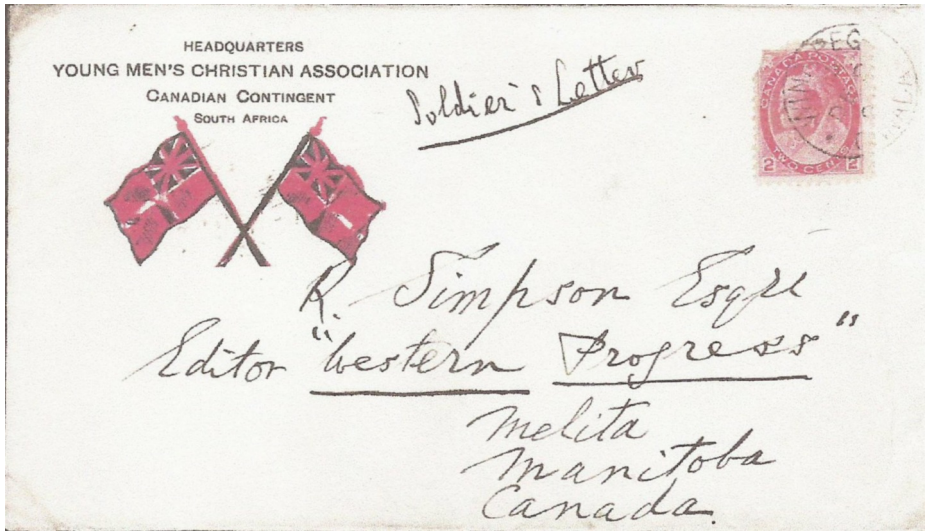 HEADQUARTERS
YOUNG MEN'S CHRISTIAN ASSOCIATION
CANADIAN CONTINGENT
SOUTH AFRICA
Soldier's Letter
CANADA POSTAGE
2 TWO CENTS 2
R. Simpson Esqre
Editor "Western Progress"
Melita
Manitoba
Canada.